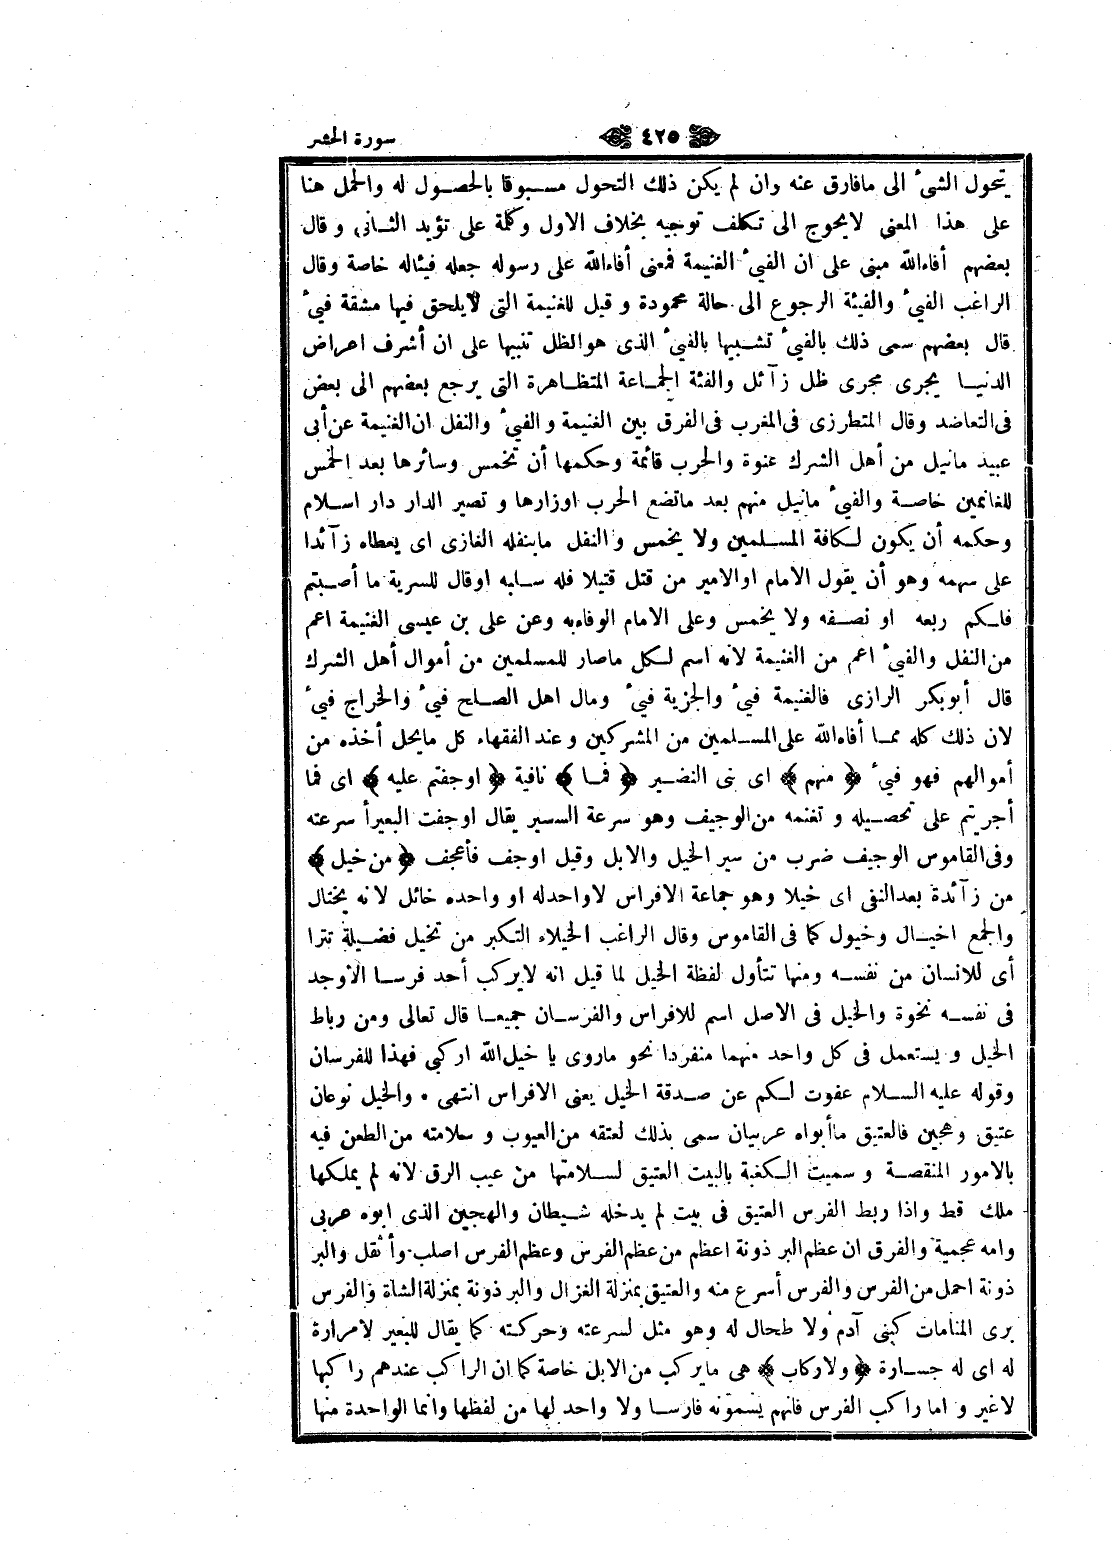 سورة الحشر ﴿ ٤٢٥ ﴾
يتحول الشئ الى مافارق عنه وان لم يكن ذلك التحول مسبوقا بالحصول له والحمل هنا
على هذا المعنى لايحوج الى تكلف توجيه بخلاف الاول وكلمة على تؤيد الثانى وقال
بعضهم أفاءالله مبنى على ان الفيئ الغنيمة فمعنى أفاءالله على رسوله جعله فيئاله خاصة وقال
الراغب الفيئ والفيئة الرجوع الى حالة محمودة وقيل للغنيمة التى لايلحق فيها مشقة فيئ
قال بعضهم سمى ذلك بالفيئ تشبيها بالفيئ الذى هوالظل تنبيها على ان أشرف اعراض
الدنيا يجرى مجرى ظل زآئل والفئة الجماعة المتظاهرة التى يرجع بعضهم الى بعض
فى التعاضد وقال المتطرزى فى المغرب فى الفرق بين الغنيمة والفيئ والنفل ان الغنيمة عن أبى
عبيد مانيل من أهل الشرك عنوة والحرب قائمة وحكمها أن تخمس وسائرها بعد الخمس
للغانمين خاصة والفيئ مانيل منهم بعد ماتضع الحرب اوزارها وتصير الدار دار اسلام
وحكمه أن يكون لكافة المسلمين ولا يخمس والنفل ماينفله الغازى اى يعطاه زآئدا
على سهمه وهو أن يقول الامام اوالامير من قتل قتيلا فله سلبه اوقال للسرية ما أصبتم
فلكم ربعه او نصفه ولا يخمس وعلى الامام الوفاءبه وعن على بن عيسى الغنيمة اعم
من النفل والفيئ اعم من الغنيمة لانه اسم لكل ماصار للمسلمين من أموال أهل الشرك
قال أبوبكر الرازى فالغنيمة فيئ والجزية فيئ ومال اهل الصلح فيئ والخراج فيئ
لان ذلك كله مما أفاءالله على المسلمين من المشركين وعند الفقهاء كل مايحل أخذه من
أموالهم فهو فيئ ﴿ منهم ﴾ اى بنى النضير ﴿ فما ﴾ نافية ﴿ اوجفتم عليه ﴾ اى فما
أجريتم على تحصيله وتغنمه من الوجيف وهو سرعة السير يقال اوجفت البعيرأ سرعته
وفى القاموس الوجيف ضرب من سير الخيل والابل وقيل اوجف فأعجف ﴿ من خيل ﴾
من زآئدة بعد النفى اى خيلا وهو جماعة الافراس لاواحدله او واحده خائل لانه يختال
والجمع اخيال وخيول كما فى القاموس وقال الراغب الخيلاء التكبر من تخيل فضيلة تترا
أى للانسان من نفسه ومنها تتأول لفظة الخيل لما قيل انه لايركب أحد فرسا الاوجد
فى نفسه نخوة والخيل فى الاصل اسم للافراس والفرسان جميعا قال تعالى ومن رباط
الخيل ويستعمل فى كل واحد منهما منفردا نحو ماروى يا خيل الله اركبى فهذا للفرسان
وقوله عليه السلام عفوت لكم عن صدقة الخيل يعنى الافراس انتهى • والخيل نوعان
عتيق وهجين فالعتيق ماأبواه عربيان سمى بذلك لعتقه من العيوب وسلامته من الطعن فيه
بالامور المنقصة وسميت الكعبة بالبيت العتيق لسلامتها من عيب الرق لانه لم يملكها
ملك قط واذا ربط الفرس العتيق فى بيت لم يدخله شيطان والهجين الذى ابوه عربى
وامه عجمية والفرق ان عظم البر ذونة اعظم من عظم الفرس وعظم الفرس اصلب وأثقل والبر
ذونة احمل من الفرس والفرس أسرع منه والعتيق بمنزلة الغزال والبر ذونة بمنزلة الشاة والفرس
يرى المنامات كبنى آدم ولا طحال له وهو مثل لسرعته وحركته كما يقال للبعير لامرارة
له اى له جسارة ﴿ ولاركاب ﴾ هى مايركب من الابل خاصة كما ان الراكب عندهم راكبها
لاغير واما راكب الفرس فانهم يسمونه فارسا ولا واحد لها من لفظها وانما الواحدة منها